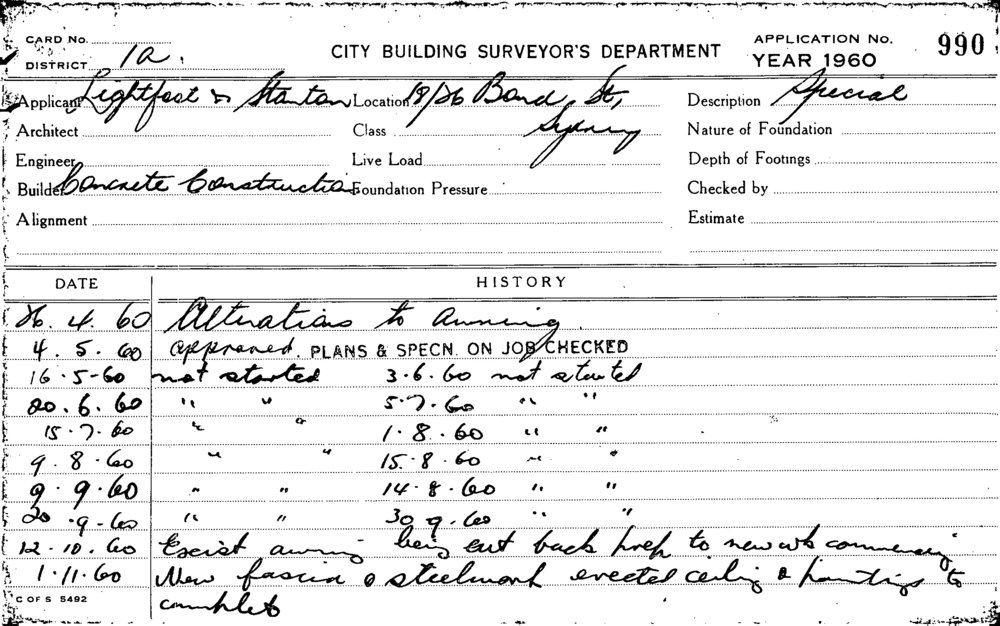 CARD NO.
DISTRICT 1a.
CITY BUILDING SURVEYOR'S DEPARTMENT
APPLICATION NO. 990
YEAR 1960
Applicant Lightfoot & Stanton Location 18/26 Bond St, Description Special
Architect Class Sydney Nature of Foundation
Engineer Live Load Depth of Footings
Builder Concrete Construction Foundation Pressure Checked by
Alignment Estimate
DATE HISTORY
26. 4. 60 Alterations to Awning.
4. 5. 60 approved. PLANS & SPECN. ON JOB CHECKED
16-5-60 not started 3.6.60 not started
20.6.60 " " 5.7.60 " "
15.7.60 " " 1.8.60 " "
9.8.60 " " 15.8.60 " "
9.9.60 " " 14.8.60 " "
20.9-60 " " 30 9.60 " "
12.10.60 Exist awning being cut back prep to new wk commencing
1.11.60 New fascia & steelwork erected ceiling & paintings to
complete
C OF S 5492